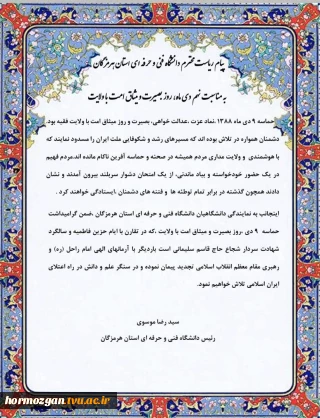 پیام ریاست محترم دانشگاه فنی و حرفه ای استان هرمزگان
به مناسبت نهم دی ماه، روز بصیرت و میثاق امت با ولایت
حماسه ۹ دی ماه ۱۳۸۸ ،نماد عزت ،عدالت خواهی، بصیرت و روز میثاق امت با ولایت فقیه بود.
دشمنان همواره در تلاش بوده اند که مسیرهای رشد و شکوفایی ملت ایران را مسدود نمایند که
با هوشمندی و ولایت مداری مردم همیشه در صحنه و حماسه آفرین ناکام مانده اند.مردم فهیم
در یک حضور خودخواسته و بیاد ماندنی، از یک امتحان دشوار سربلند بیرون آمدند و نشان
دادند همچون گذشته در برابر تمام توطئه ها و فتنه های دشمنان ،ایستادگی خواهند کرد .
اینجانب به نمایندگی دانشگاهیان دانشگاه فنی و حرفه ای استان هرمزگان ،ضمن گرامیداشت
حماسه ۹ دی ،روز بصیرت و میثاق امت با ولایت ،که در تقارن با ایام حزین فاطمیه و سالگرد
شهادت سردار شجاع حاج قاسم سلیمانی است باردیگر با آرمانهای الهی امام راحل (ره) و
رهبری مقام معظم انقلاب اسلامی تجدید پیمان نموده و در سنگر علم و دانش در راه اعتلای
ایران اسلامی تلاش خواهیم نمود.
سید رضا موسوی
رئیس دانشگاه فنی و حرفه ای استان هرمزگان
hormozgan.tvu.ac.ir